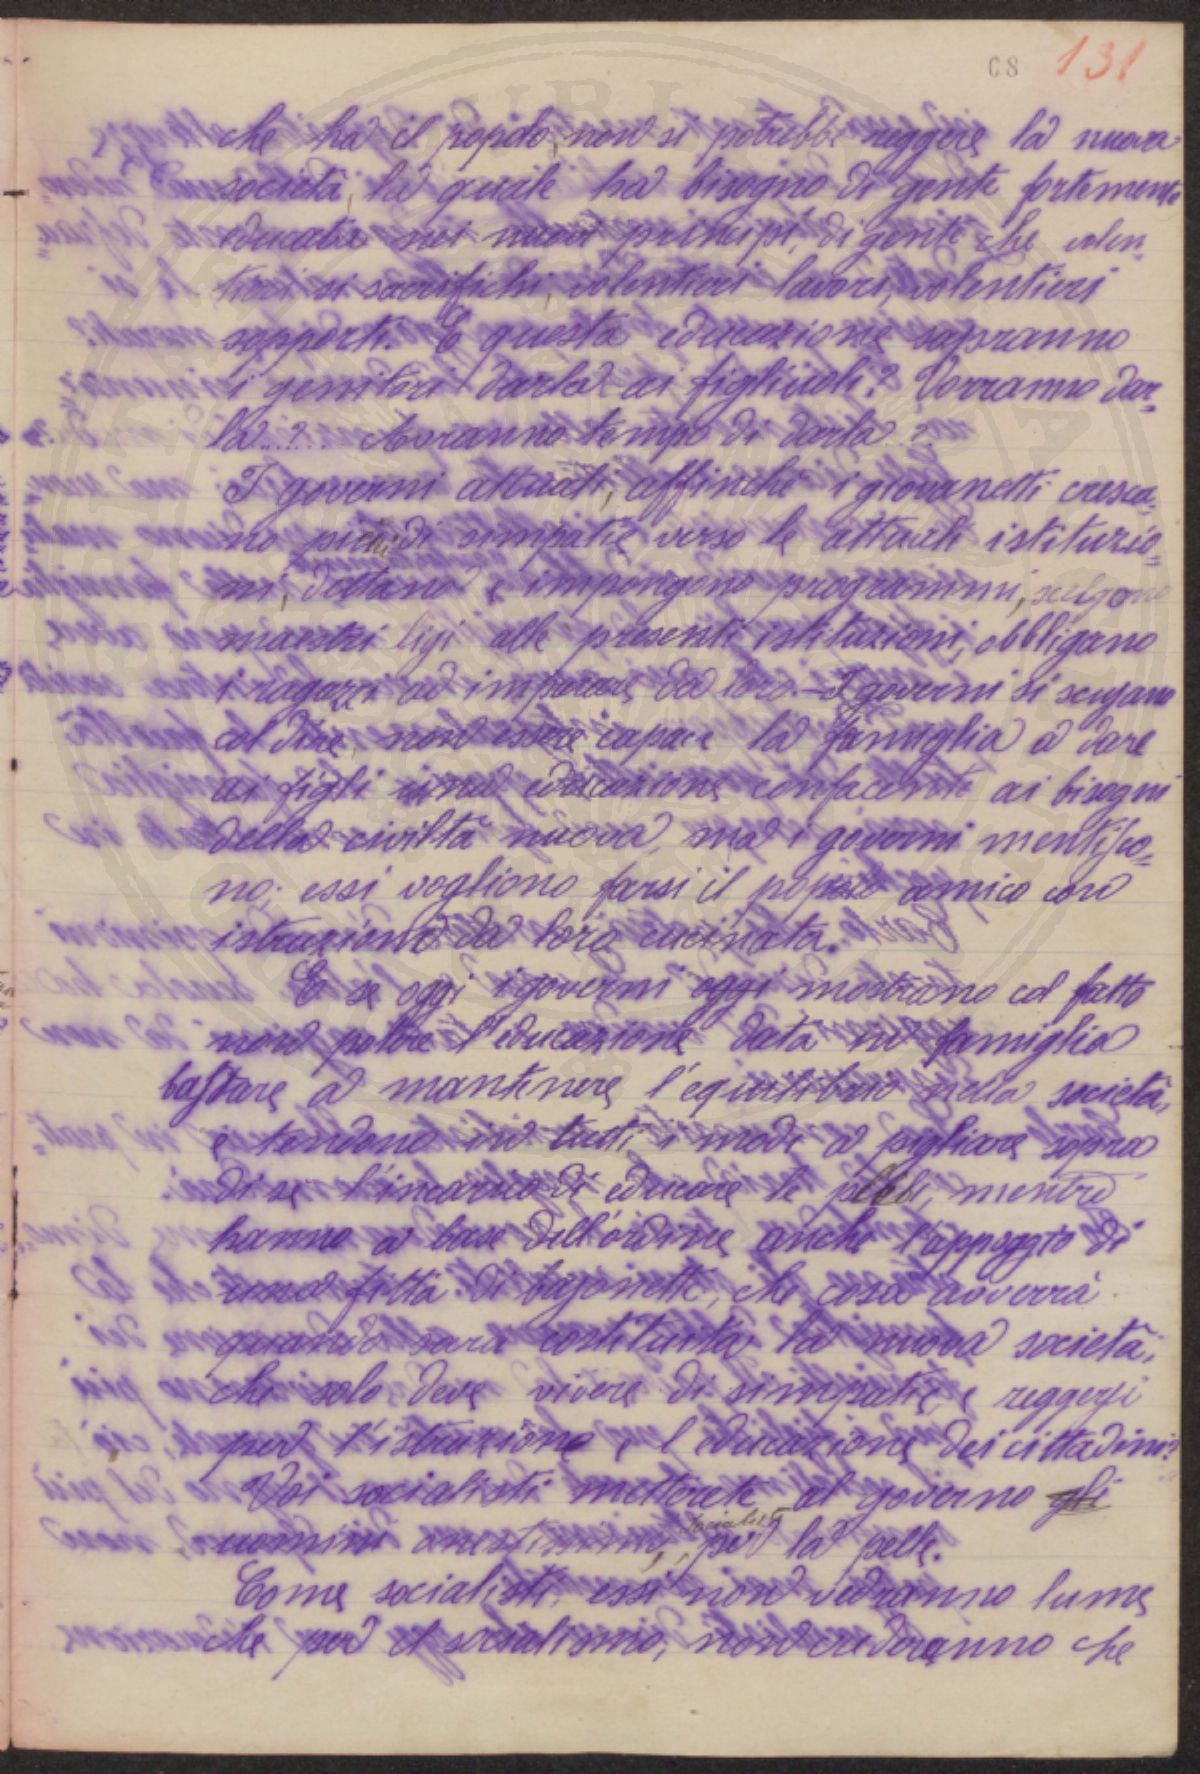 68 131
che ha il popolo, non si potrebbe reggere la nuova
società, la quale ha bisogno di gente fortemente
educata nei nuovi principi, di gente che volen„
tieri si sacrifichi, volentieri lavori, volentieri
sopporti. E questa educazione sapranno
i genitori darla ai figliuoli? Vorranno dar„
la...? Avranno tempo di darla?
I governi attuali, affinché i giovanetti cresca„
no di simpatie verso le attuali istituzio„
ni, dettano e impongono programmi, scelgono
maestri ligi alle presenti istituzioni, obbligano
i ragazzi ad imparare da loro. – I governi si scusano
col dire non essere capace la famiglia a dare
ai figli una educazione confacente ai bisogni
della civiltà nuova, ma i governi mentisco„
no: essi vogliono farsi il popolo amico con
istruzione da loro cucinata.
E se oggi i governi oggi mostrano col fatto
non potere l'educazione data in famiglia
bastare a mantenere l'equilibrio nella società,
e tendono in tutti i modi a pigliare sopra
di se l'incarico di educare le plebi, mentre
hanno a base dell'ordine anche l'appoggio di
una fitta di bajonette, che cosa avverrà
quando sarà costituita la nuova società,
che solo deve vivere di simpatie e reggersi
per l'istruzione e l'educazione dei cittadini?
Voi socialisti metterete al governo gli
socialisti
uomini onestissimi, per la pelle.
Come socialisti essi non vedranno lume
che per il socialismo, non crederanno che